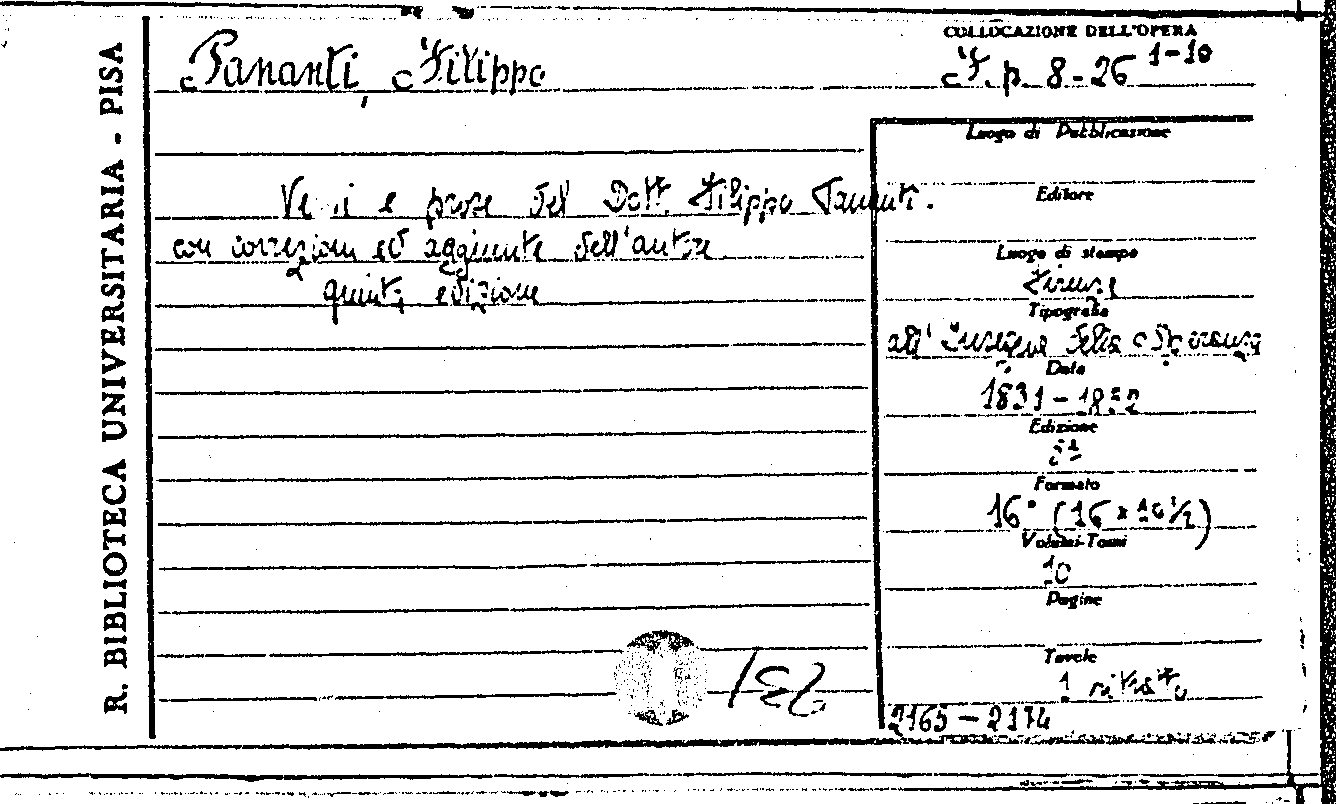 R. BIBLIOTECA UNIVERSITARIA - PISA
Pananti, Filippo
COLLOCAZIONE DELL'OPERA
F. p. 8-26 1-10
Versi e prose del Dott. Filippo Pananti.
con correzioni ed aggiunte dell'autore
quinta edizione
Luogo di Pubblicazione
Editore
Luogo di stampa
Firenze
Tipografia
all'Insegna della Speranza
Data
1831-1832
Edizione
5ª
Formato
16° (16 x 10 1/2)
Volumi-Tomi
10
Pagine
Tavole
1 ritratto
2165-2174